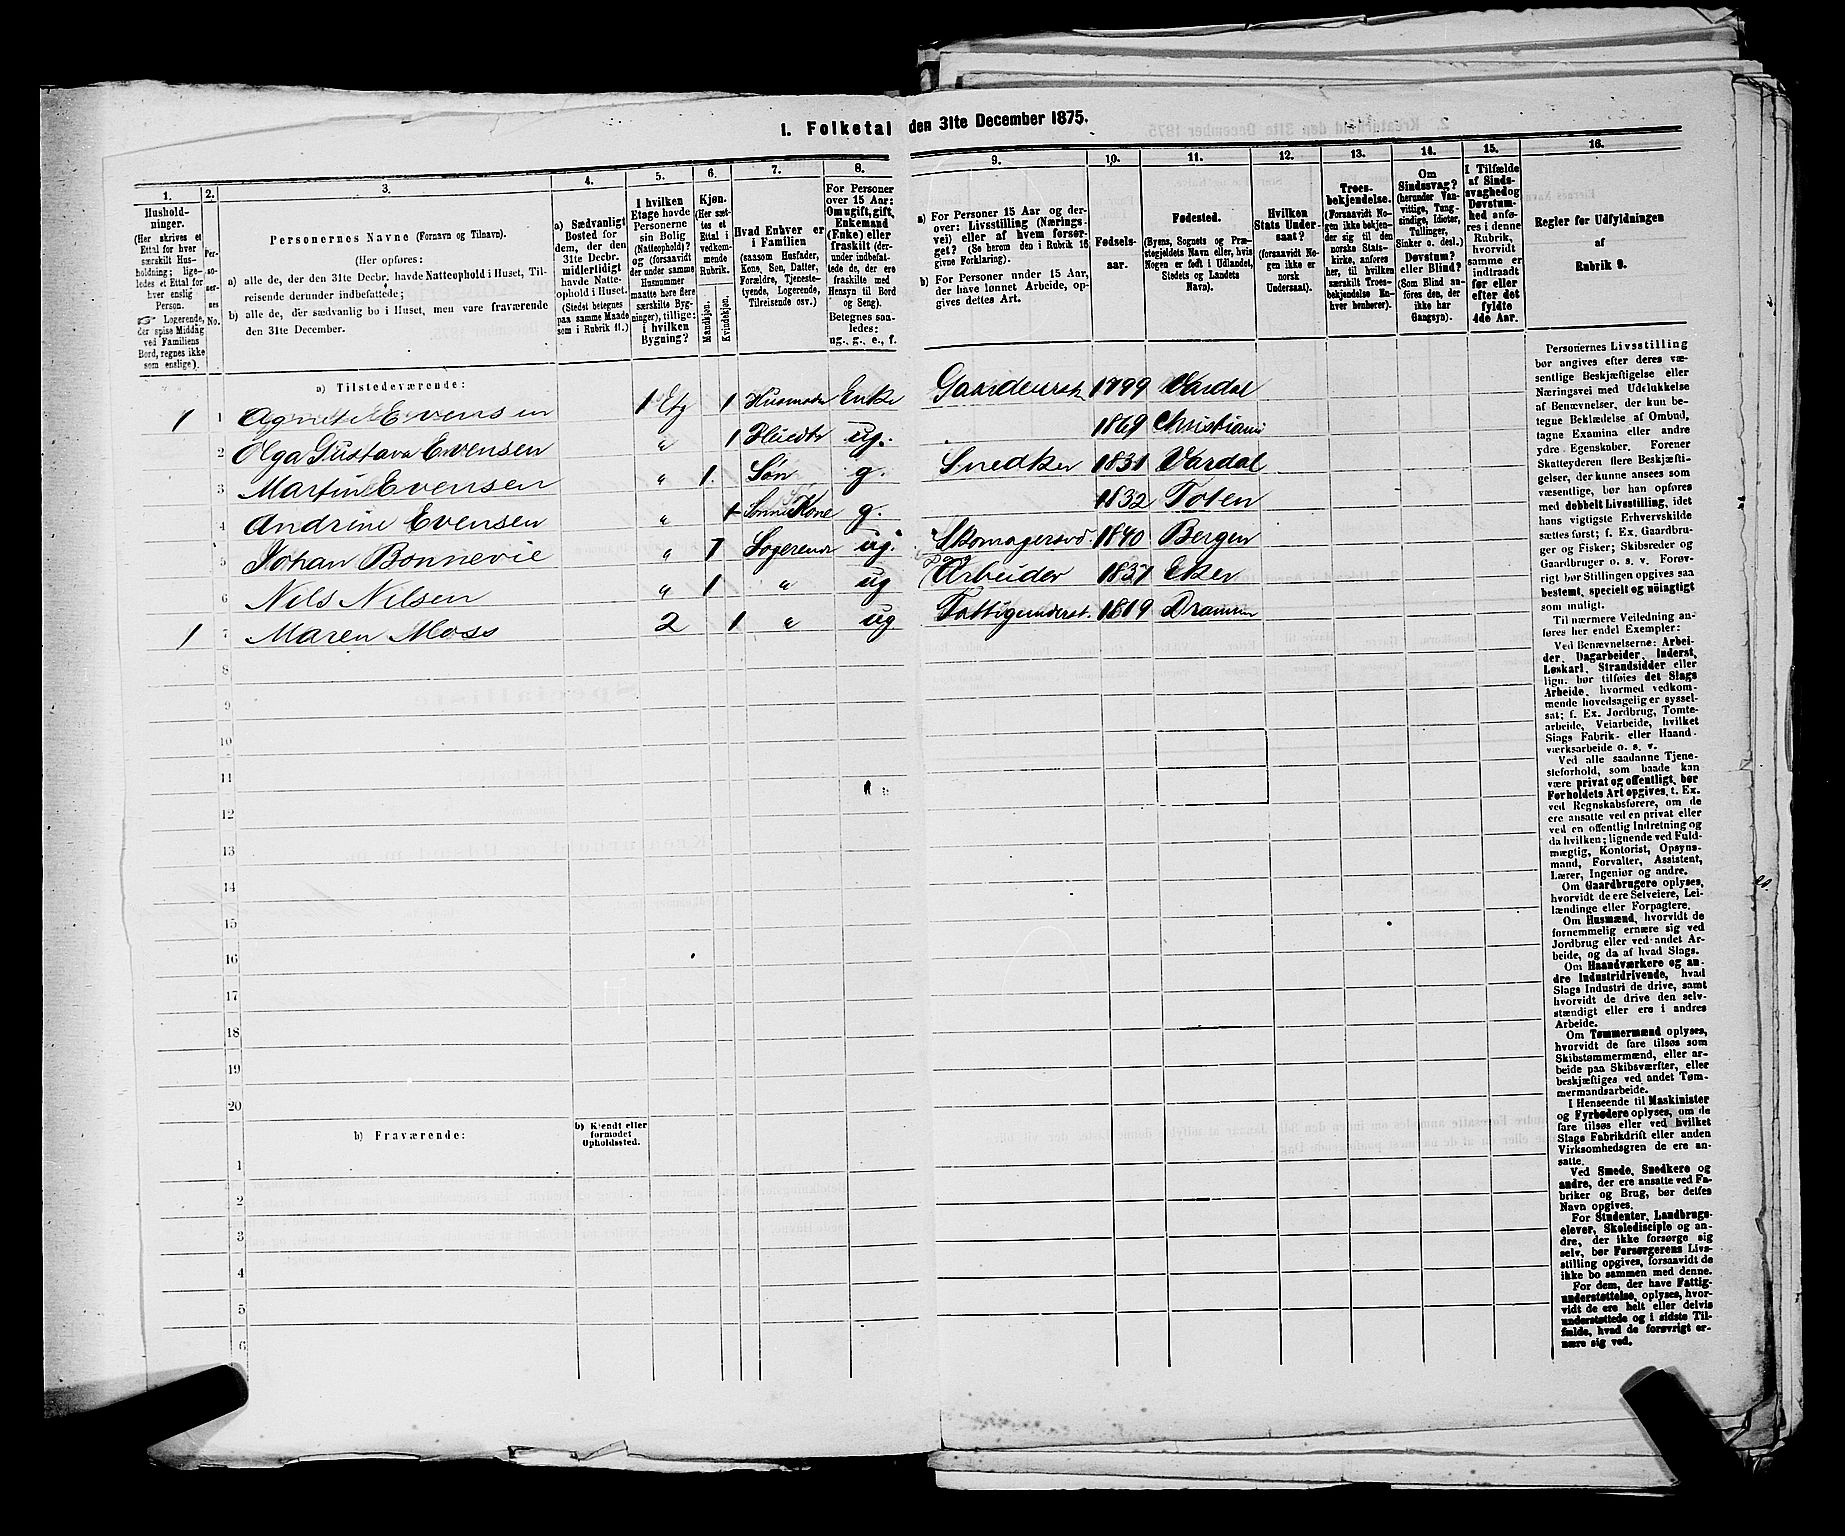 1. Folketal den 31te December 1875.
1.
Hushold-
ninger.
(Her skrives et
Ettal for hver
særskilt Hus-
holdning; lige-
ledes et Ettal for
hver enslig
Person.
Logerende,
der spise Middag
ved Familiens
Bord, regnes ikke
som enslige).
2.
Per-
so-
ner-
nes
No.
3.
Personernes Navne (Fornavn og Tilnavn).
(Her opføres:
a) alle de, der den 31te Decbr. havde Natteophold i Huset, Til-
reisende derunder indbefattede;
b) alle de, der sædvanlig bo i Huset, men vare fraværende
den 31te December.
4.
a) Sædvanligt
Bosted for
dem, der den
31te Decbr.
midlertidigt
havde Natte-
ophold i Huset.
(Stedet betegnes
paa samme Maade
som i Rubrik 11.)
5.
I hvilken
Etage havde
Personerne
sin Bolig
(Natteophold)?
og (forsaavidt
der under samme
Husnummer
maatte høre flere
særskilte Byg-
ninger), tillige:
i hvilken
Bygning?
6.
Kjøn.
(Her sæt-
tes et
Ettal i
vedkom-
mende
Rubrik.
Mandkjøn.
Kvindekjøn.
7.
Hvad Enhver er
i Familien
(saasom Husfader,
Kone, Søn, Datter,
Forældre, Tjeneste-
tyende, Logerende,
Tilreisende osv.)
8.
For Personer
over 15 Aar:
Om ugift, gift,
Enkemand
(Enke) eller
fraskilt (der-
under indbefat-
tede de, der ere
fraskilte med
Hensyn til Bord
og Seng).
Betegnes saa-
ledes:
ug., g., e., f.
9.
a) For Personer 15 Aar og der-
over: Livsstilling (Nærings-
vei) eller af hvem forsør-
get? (Se herom den i Rubrik 16
givne Forklaring).
b) For Personer under 15 Aar,
der have lønnet Arbeide, op-
gives dettes Art.
10.
Fødsels-
aar.
11.
Fødested.
(Byens, Sognets og Præ-
stegjeldets Navn eller, hvis
Nogen er født i Udlandet,
Stedets og Landets
Navn).
12.
Hvilken
Stats Under-
saat?
(forsaavidt No-
gen ikke er
norsk
Undersaat).
13.
Troes-
bekjendelse.
(Forsaavidt No-
gen ikke bekjen-
der sig til den
norske Stats-
kirke, anføres
her, til hvilken
særskilt Troes-
bekjendelse En-
hver henhører).
14.
Om
Sindssvag?
(herunder Van-
vittige, Tung-
sindige, Idioter,
Tullinger,
Sinker o. desl.)
Døvstum?
eller Blind?
(Som Blind an-
føres den, der
ikke har
Gangsyn).
15.
I Tilfælde
af Sinds-
svaghed og
Døvstum-
hed anfø-
res i denne
Rubrik,
hvorvidt
samme er
indtraadt
før eller
efter det
fyldte
4de Aar.
16.
Regler for Udfyldningen
af
Rubrik 9.
a) Tilstedeværende:
1 1 Agnete Evensen 1 Etg 1 Husmoder Enke 1799 Vardal
2 Olga Gustava Evensen " 1 ug. 1869 Christiania
3 Martin Evensen " 1. Søn g. Snedker 1831 Vardal
4 Andrine Evensen " 1 Sønne Kone g. 1832 Toten
5 Johan Bonnevie " 1 Logerende ug. Skomagersv. 1840 Bergen
6 Nils Nilsen " 1 " ug Arbeider 1837 Eker
1 7 Maren Moss 2 1 " ug Fattigunderst. 1819 Drammen
8
9
10
11
12
13
14
15
16
17
18
19
20
b) Fraværende:
b) Kjendt eller
formodet
Opholdssted.
1
2
3
4
5
6
Personernes Livsstilling
bør angives efter deres væ-
sentlige Beskjæftigelse eller
Næringsvei med Udelukkelse
af Benævnelser, der kun be-
tegne Beklædelse af Ombud,
tagne Examina eller andre
ydre Egenskaber. Forener
Skatteyderen flere Beskjæfti-
gelser, der kunne ansees som
væsentlige, bør han opføres
med dobbelt Livsstilling, idet
hans vigtigste Erhvervskilde
sættes først; f. Ex. Gaardbru-
ger og Fisker; Skibsreder og
Gaardbruger o. s. v. Forøv-
rigt bør Stillingen opgives saa
bestemt, specielt og nøiagtigt
som muligt.
Til nærmere Veiledning an-
føres her endel Exempler:
Ved Benævnelserne: Arbei-
der, Dagarbeider, Inderst,
Løskarl, Strandsidder eller
lign. bør tilføies det Slags
Arbeide, hvormed vedkom-
mende hovedsagelig er syssel-
sat; f. Ex. Jordbrug, Tomte-
arbeide, Veiarbeide, hvilket
Slags Fabrik- eller Haand-
værksarbeide o. s. v.
Ved alle saadanne Tjene-
steforhold, som baade kan
være privat og offentligt, bør
Forholdets Art opgives, t. Ex.
ved Regnskabsførere, om de
ere ansatte ved en privat eller
ved en offentlig Indretning og
da hvilken; lignende ved Fuld-
mægtig, Kontorist, Opsyns-
mand, Forvalter, Assistent,
Lærer, Ingeniør og andre.
Om Gaardbrugere oplyses,
hvorvidt de ere Selveiere, Lei-
lændinge eller Forpagtere.
Om Husmænd, hvorvidt de
fornemmelig ernære sig ved
Jordbrug eller ved andet Ar-
beide, og da af hvad Slags.
Om Haandværkere og an-
dre Industridrivende, hvad
Slags Industri de drive, samt
hvorvidt de drive den selv-
stændigt eller ere i andres
Arbeide.
Om Tømmermænd oplyses,
hvorvidt de fare tilsøs som
Skibstømmermænd, eller ar-
beide paa Skibsværfter, eller
beskjæftiges ved andet Tøm-
mermandsarbeide.
I Henseende til Maskinister
og Fyrbødere oplyses, om de
fare tilsøs eller ved hvilket
Slags Fabrikdrift eller anden
Virksomhedsgren de ere an-
satte.
Ved Smede, Snedkere og
andre, der ere ansatte ved Fa-
briker og Brug, bør dettes
Navn opgives.
For Studenter, Landbrugs-
elever, Skoledisciple og an-
dre, der ikke forsørge sig
selv, bør Forsørgerens Livs-
stilling opgives, forsaavidt de
ikke bo sammen med denne.
For dem, der have Fattig-
understøttelse, oplyses, hvor-
vidt de ere helt eller delvis
understøttede og i sidste Til-
fælde, hvad de forøvrigt er-
nære sig ved.